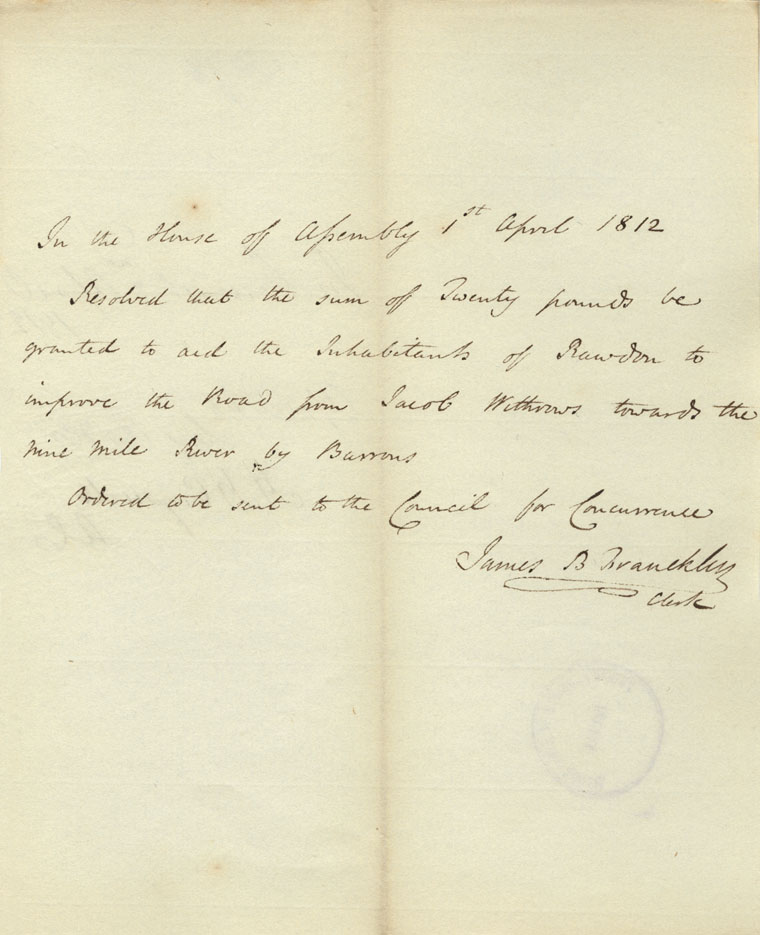 In the House of Assembly 1st April 1812
Resolved that the sum of Twenty pounds be
granted to aid the Inhabitants of Rawdon to
improve the Road from Jacob Withrows towards the
nine mile River by Barrons
Ordered to be sent to the Council for Concurrence
James B Franckling
Clerk